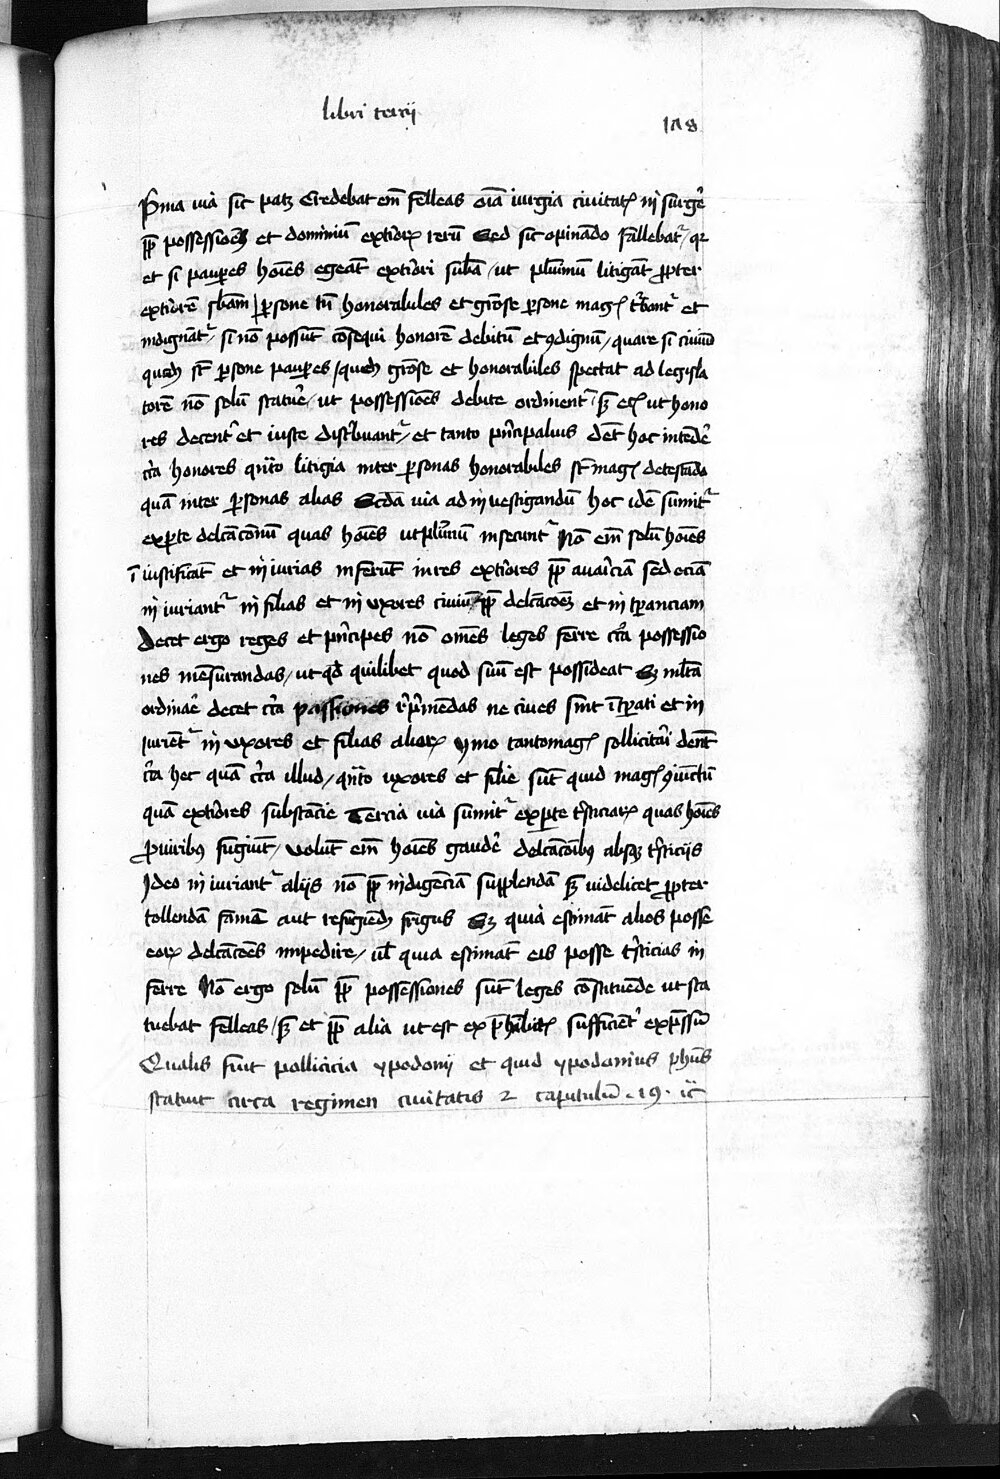 libri tercij
178
P̄ma via sic patꝫ Credebat em̄ felleas oīa iurgia civitatꝭ in surge᷑
ꝓp̄ possessiōēs et dominiū extiorꝝ rerū Sed sic opinādo fallebatᷣ / qꝛ
et si paup̲es hoīes egeāt extiori suba᷑ / ut plurimū litigāt ꝓpter
extiorē sbām / p̲sone tn̄ honorabiles et grōse p̲sone magꝭ tᷣbantᷣ et
indignātᷣ / si nō possūt cōsequi honorē debitū et ꝯdignū / quare si ciuiū
quidā st̄ p̲sone paup̲es / quidā grōse et honorabiles spectat ad legisla
torē nō solū statue᷑ / ut possessiōēs debite ordinentᷣ sꝫ etꝭ ut hono
res decent᷑ et iuste distᷣbuantᷣ / et tanto pn̄cipalius dꝫ hoc intēde᷑
cir̄a honores qn̄to litigia inter p̲sonas honorabiles st̄ magꝭ detestāda
quā inter p̲sonas alias Secda᷑ via ad investigandū hoc idē sumitᷣ
ex p̲te delcācōnū quas hoīes ut plurimū insecuntᷣ Nō em̄ solū hoīes
ī iustificāt et in iurias inferūt in res extiores ꝓp̄ auariciā sed eciā
in iuriantᷣ in filias et in uxores ciuiū ꝓp̄ delcācōēs et in tp̲anciam
decet ergo reges et pn̄cipes nō om̄es leges ferre circa possessio
nes mēsurandas / ut qd̄ quilibet quod suū est possideat Sꝫ ml̄ta
ordina᷑e decet cir̄a passiones rep̄mēdas ne ciues sint ītp̲ati et in
iurientᷣ in uxores et filias aliorꝝ ymo tanto magꝭ sollicitari dēt
cir̄a hec quā cir̄a illud / qn̄to uxores et filie sūt quid magꝭ ꝯiūctū
quā extiores substācie Tercia via sumitᷣ ex p̲te tᷣsticiarꝝ quas hoīes
ꝓ viribꝫ fugiūt / volūt em̄ hoīes gaude᷑ delcācōibꝫ absqꝫ tᷣsticijs
Ideo in iuriantᷣ alijs nō ꝓp̄ indigēciā supplendā sꝫ videlicet ꝓpter
tollendā famē aut refugiēdū frigus Sꝫ quia estimāt alios posse
eorꝝ delcācōēs impedire / ul̄ quia estimāt eis posse tᷣsticias in
ferre Nō ergo solū ꝓp̄ possessiones sūt leges cōstituēde ut sta
tuebat felleas / sꝫ et ꝓp̄ alia ut est ex p̄habitꝭ sufficient᷑ exp̄ssū
Qualis fuit pollicicia ypodomi et quid ypodamus phūs
statuit circa regimen civitatis 2 capitulū . 19 .